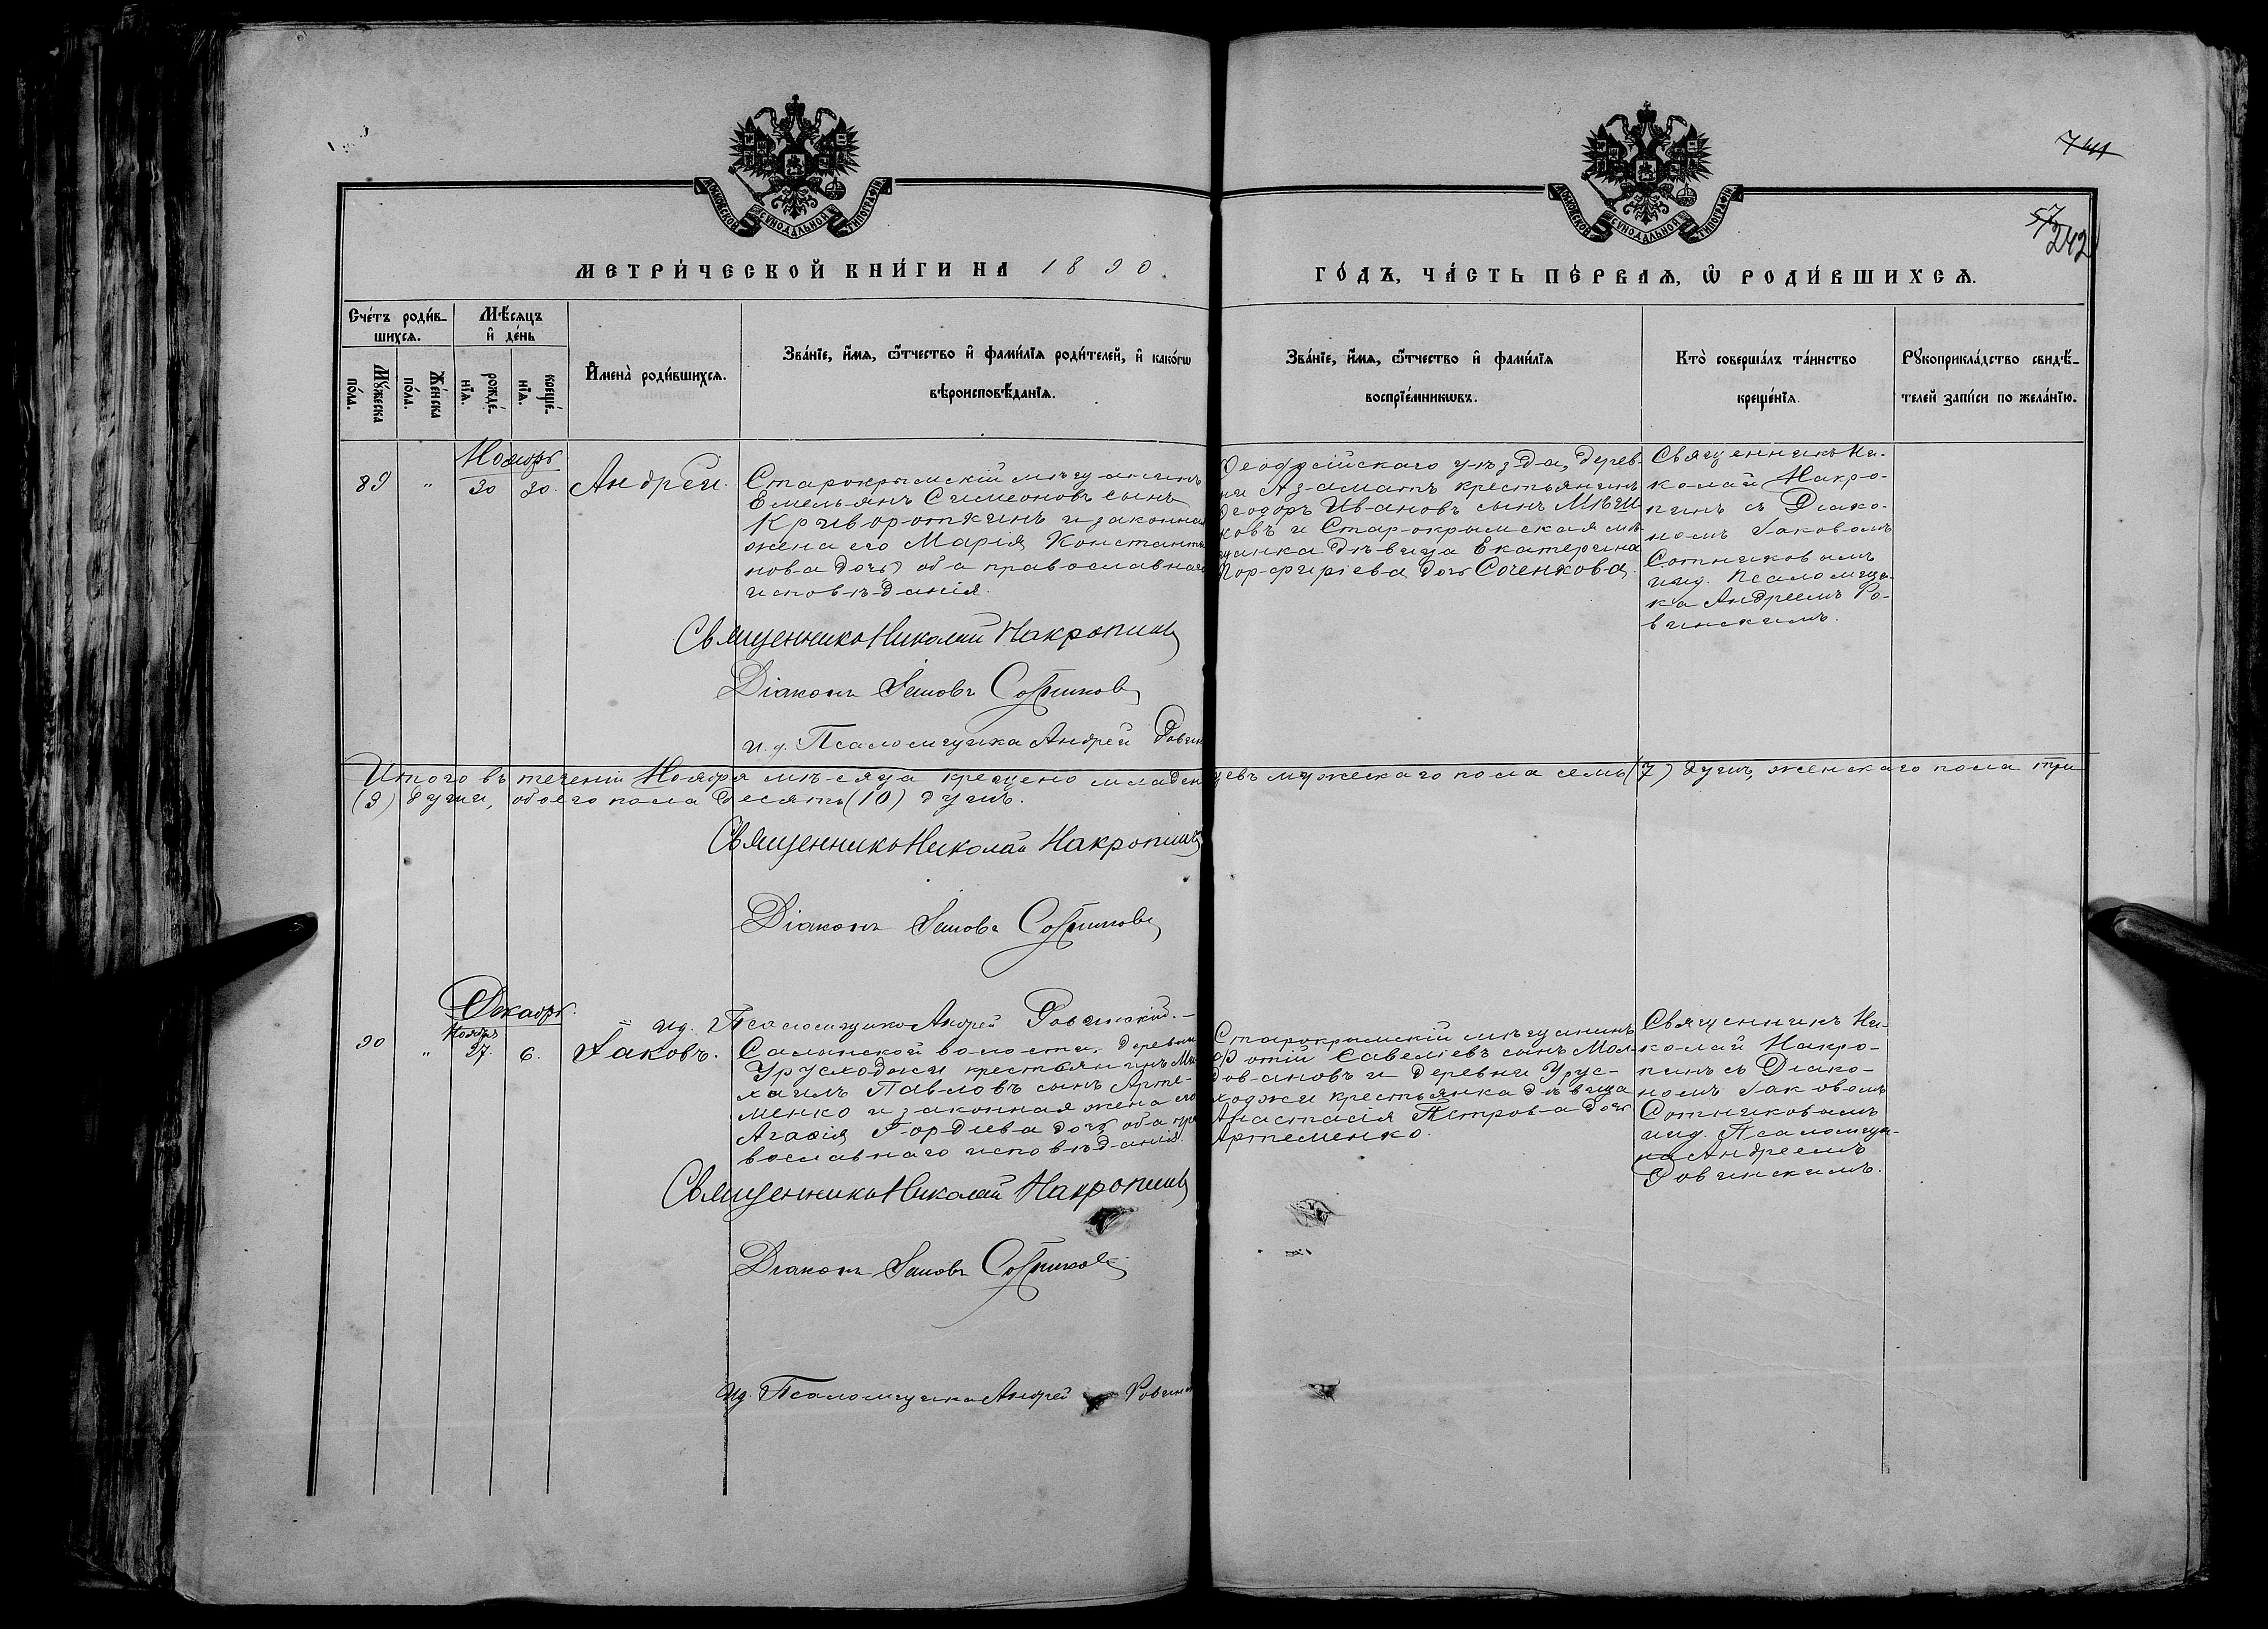 741
57
242
МОСКОВСКОЙ СУНОДАЛЬНОЙ ТИПОГРАФІИ
МОСКОВСКОЙ СУНОДАЛЬНОЙ ТИПОГРАФІИ
МЕТРИ́ЧЕСКОЙ КНИ́ГИ НА 1890.
ГО́ДЪ, ЧА́СТЬ ПЕ́РВАѦ, Ѿ РОДИ́ВШИХСѦ.
Сче́тъ роди́в-
шихсѧ.
Мѣ́сѧцъ
и҆ де́нь
Мꙋ́жеска
по́ла.
Же́нска
по́ла.
рожде́-
нїѧ.
креще́-
нїѧ.
И҆мена̀ роди́вшихсѧ.
Зва́нїе, и҆́мѧ, ѻ҆́тчество и҆ фами́лїѧ роди́телей, и҆ како́гѡ
вѣроисповѣ́данїѧ.
Зва́нїе, и҆́мѧ, ѻ҆́тчество и҆ фами́лїѧ
воспрїе́мникѡвъ.
Кто̀ соверша́лъ та́инство
креще́нїѧ.
Рꙋкоприкла́дство свидѣ́-
телей за́писи по жела́нїю.
Ноябрь
89 " 30 30. Андрей.
Старокрымскій мѣщанинъ
Емельянъ Симеоновъ сынъ
Криворотякинъ и законная
жена его Марія Константи
нова дочь оба православнаго
исповѣданія.
Ѳеодосійскаго уѣзда, дерев-
ни Азаматъ крестьянинъ
Ѳеодоръ Ивановъ сынъ Мѣш
ковъ и Старокрымская мѣ
щанка дѣвица Екатерина
Порфиріева дочь Соченкова.
Священникъ Ни-
колай Накро-
пинъ съ Діако-
номъ Іаковомъ
Сотниковымъ
и и.д. Псаломщи-
ка Андреемъ Ро-
винскимъ.
Священникъ Николай Накропинъ
Діаконъ Іаковъ Сотниковъ
и. д. Псаломщика Андрей Ровин
Итого въ теченіи Ноября мѣсяца крещено младенцевъ мужескаго пола семь (7) душъ, женскаго пола три
(3) души, обоего пола десять (10) душъ.
Священникъ Николай Накропинъ
Діаконъ Іаковъ Сотниковъ
и.д. Псаломщика Андрей Ровинскій.
Декабрь.
Ноября
90 " 27. 6. Іаковъ.
Салынской волости, деревни
Урусходжи крестьянинъ Ми
хаилъ Павловъ сынъ Арте-
менко и законная жена его
Агаѳія Гордіева дочь оба пра
вославнаго исповѣданія.
Старокрымскій мѣщанинъ
Фотій Савеліевъ сынъ Мол-
довановъ и деревни Урус-
ходжи крестьянка дѣвица
Анастасія Петрова дочь
Артеменко.
Священникъ Ни-
колай Накро-
пинъ съ Діако-
номъ Іаковомъ
Сотниковымъ
и и.д. Псаломщи-
ка Андреемъ
Ровинскимъ.
Священникъ Николай Накропинъ
Діаконъ Іаковъ Сотниковъ
И.д. Псаломщика Андрей Ровинск